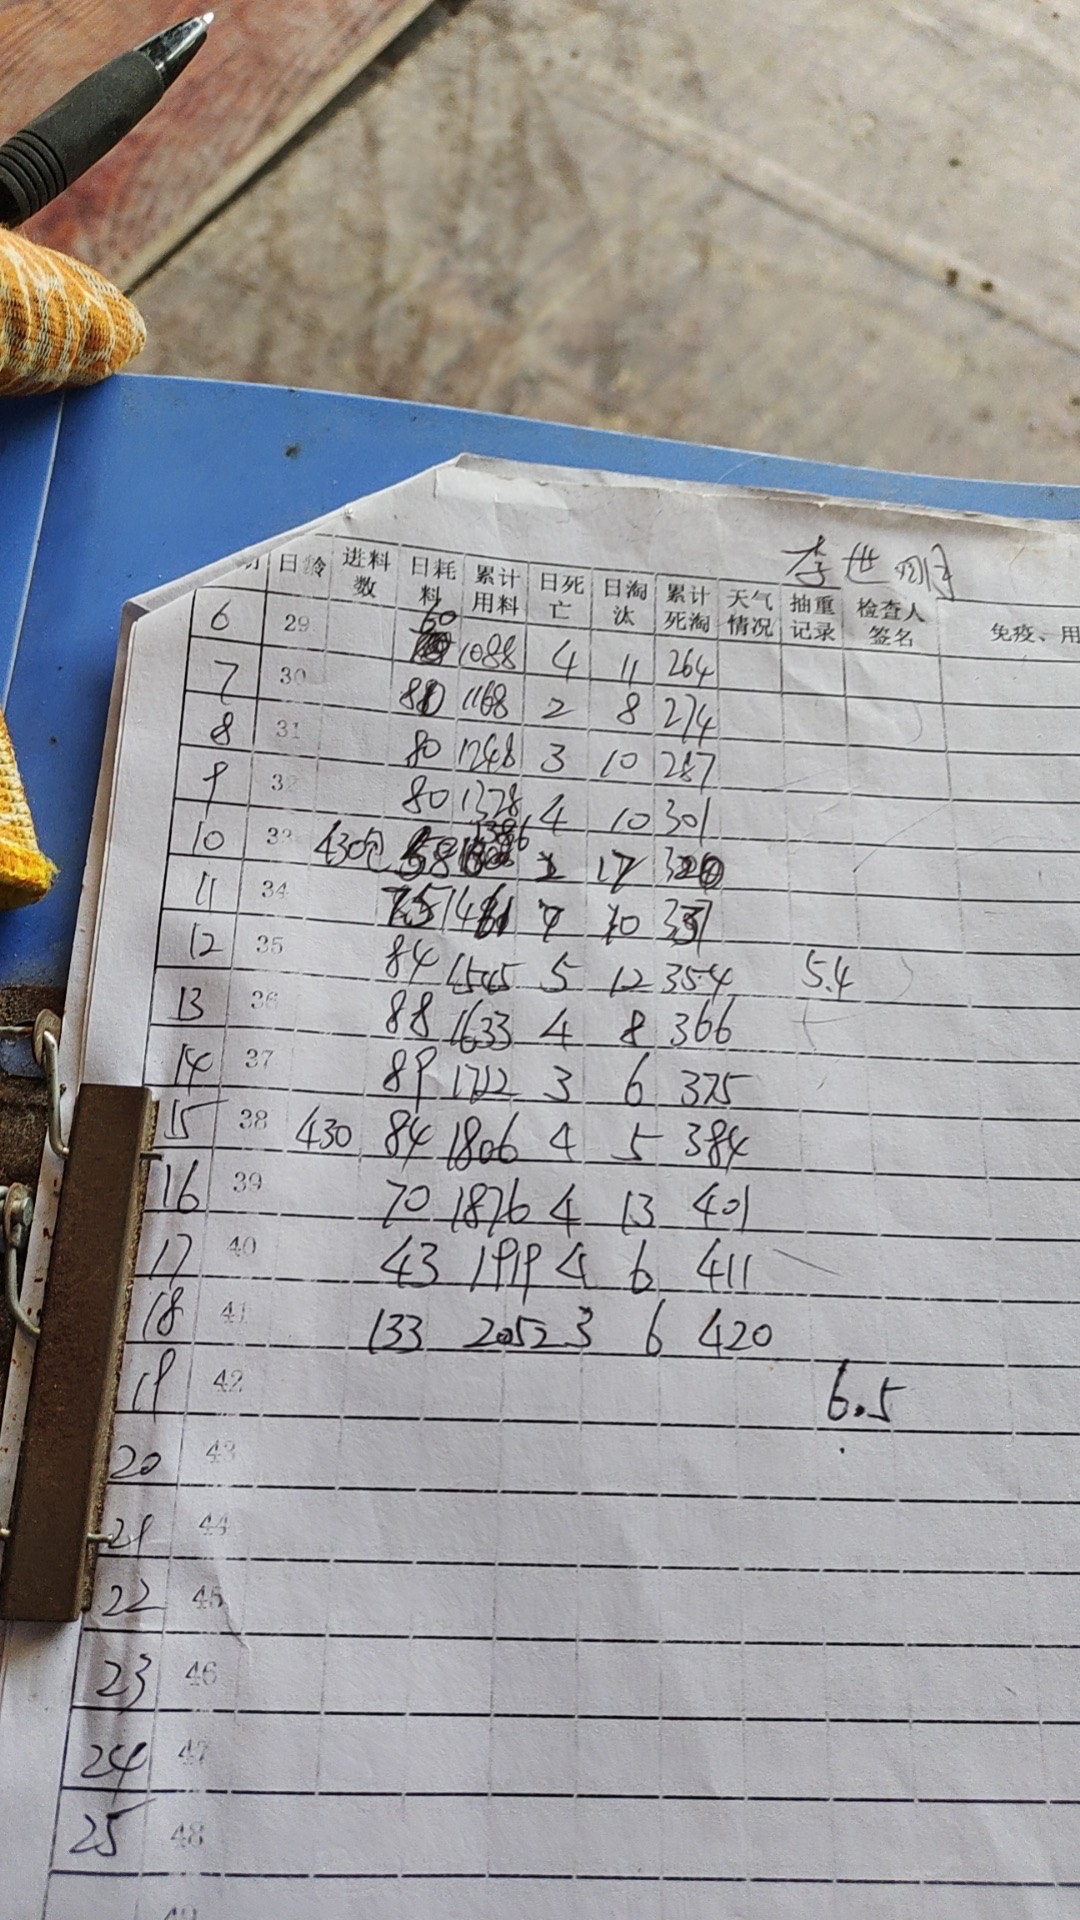 李世明
日龄 进料数 日耗料 累计用料 日死亡 日淘汰 累计死淘 天气情况 抽重记录 检查人签名 免疫、用
6 29 60 1088 4 11 264
7 30 80 1168 2 8 274
8 31 80 1248 3 10 287
9 32 80 1328 4 10 301
10 33 430包 58 1386 2 17 320
11 34 75 1461 7 10 337
12 35 84 1545 5 12 354 5.4
13 36 88 1633 4 8 366
14 37 89 1722 3 6 375
15 38 430 84 1806 4 5 384
16 39 70 1876 4 13 401
17 40 43 1919 4 6 411
18 41 133 2052 3 6 420
19 42 6.5
20 43
21 44
22 45
23 46
24 47
25 48
49